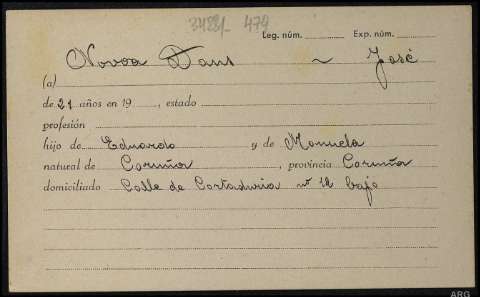 3422- 479
Leg. núm. Exp. núm.
Novoa Dans ~ José
(a)
de 21 años en 19 , estado
profesión
hijo de Eduardo y de Manuela
natural de Coruña , provincia Coruña
domiciliado Calle de Cortaduria nº 12 bajo
ARG